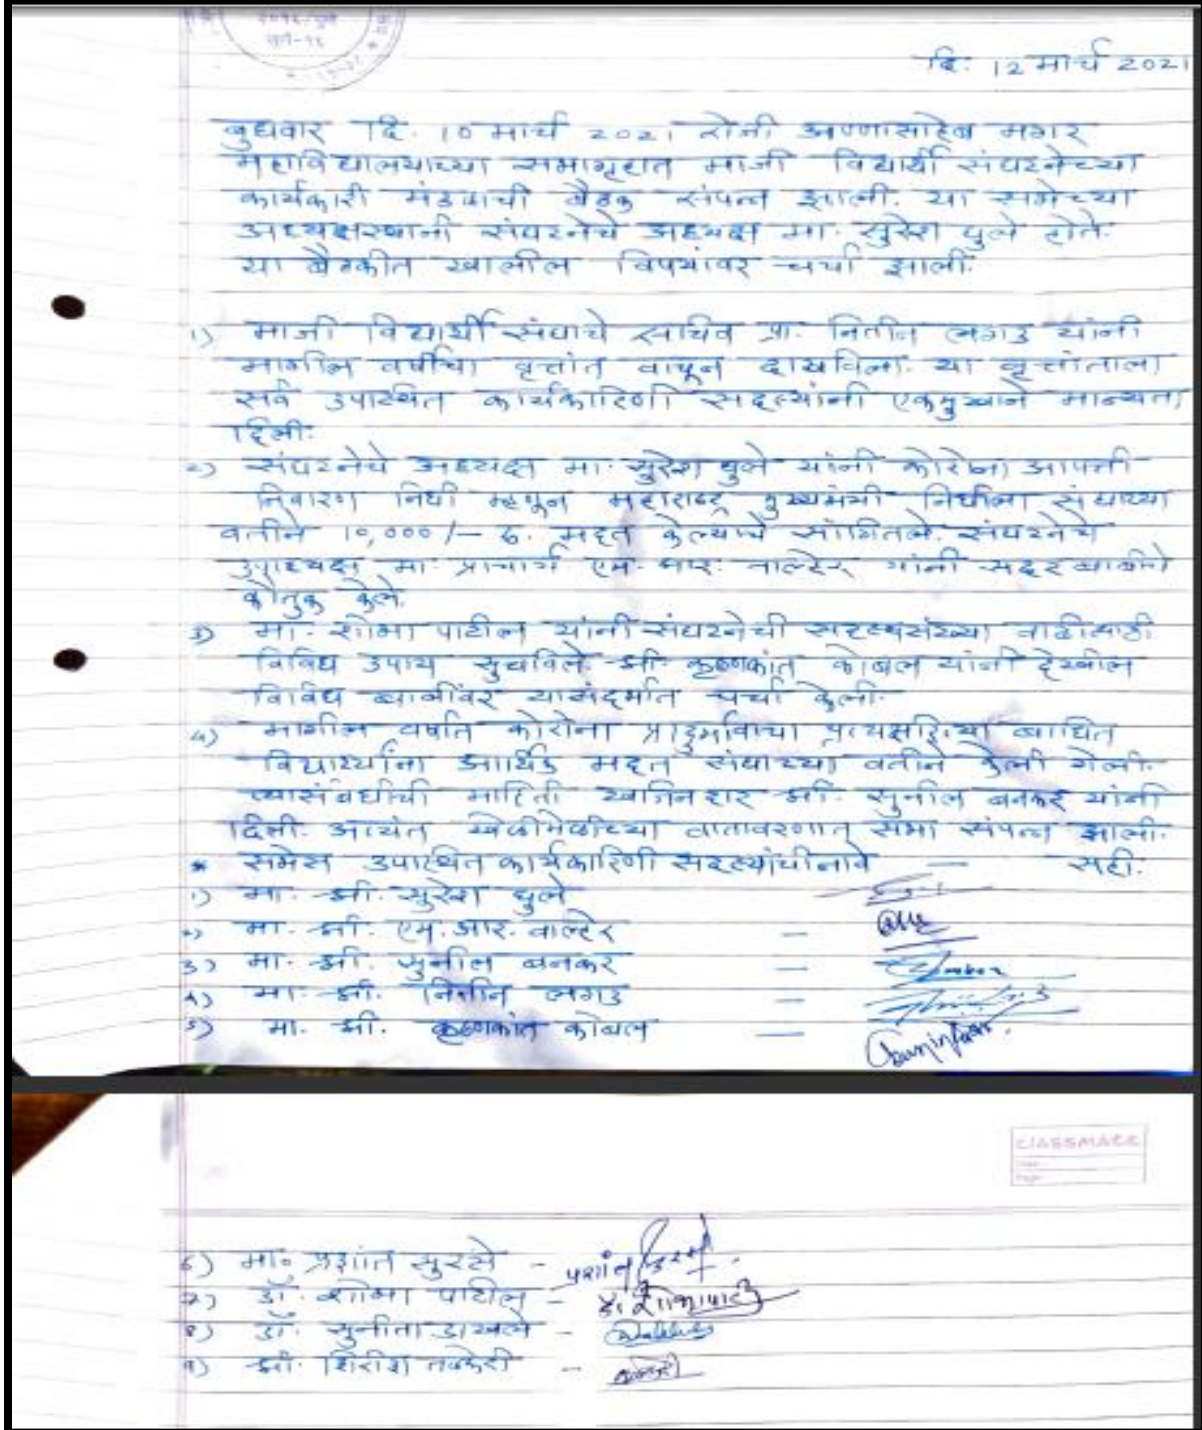 दि. 12 मार्च 2021
बुधवार दि. 10 मार्च 2021 रोजी अण्णासाहेब मगर
महाविद्यालयाच्या सभागृहात माजी विद्यार्थी संघटनेच्या
कार्यकारी मंडळाची बैठक संपन्न झाली. या सभेच्या
अध्यक्षस्थानी संघटनेचे अध्यक्ष मा. सुरेश घुले होते.
या बैठकीत खालील विषयांवर चर्चा झाली.
1) माजी विद्यार्थी संघाचे सचिव प्रा. नितीन लगड यांनी
मागील वर्षीचा वृत्तांत वाचून दाखविला. या वृत्तांताला
सर्व उपस्थित कार्यकारिणी सदस्यांनी एकमुखाने मान्यता
दिली.
2) संघटनेचे अध्यक्ष मा. सुरेश घुले यांनी कोरोना आपत्ती
निवारण निधी म्हणून महाराष्ट्र मुख्यमंत्री निधीला संघाच्या
वतीने 10,000/- रु. मदत केल्याचे सांगितले. संघटनेचे
उपाध्यक्ष मा. प्राचार्य एम. आर. वाल्टेर यांनी सदर बाबीचे
कौतुक केले.
3) मा. शोभा पाटील यांनी संघटनेची सदस्यसंख्या वाढीसाठी
विविध उपाय सुचविले. श्री. कृष्णकांत कोबल यांनी देखील
विविध बाबींवर यासंदर्भात चर्चा केली.
4) मागील वर्षात कोरोना प्रादुर्भावाचा प्रत्यक्षरित्या बाधित
विद्यार्थ्यांना आर्थिक मदत संघाच्या वतीने केली गेली.
त्यासंबंधीची माहिती खजिनदार श्री. सुनील बनकर यांनी
दिली. अत्यंत खेळीमेळीच्या वातावरणात सभा संपन्न झाली.
* सभेस उपस्थित कार्यकारिणी सदस्यांची नावे — सही.
1) मा. श्री. सुरेश घुले
2) मा. श्री. एम. आर. वाल्टेर —
3) मा. श्री. सुनील बनकर —
4) मा. श्री. नितीन लगड —
5) मा. श्री. कृष्णकांत कोबल —
CLASSMATE
6) मा. प्रशांत सुरसे - प्रशांत
7) डॉ. शोभा पाटील -
8) डॉ. सुनीता डाखले -
9) श्री. शिरीष -